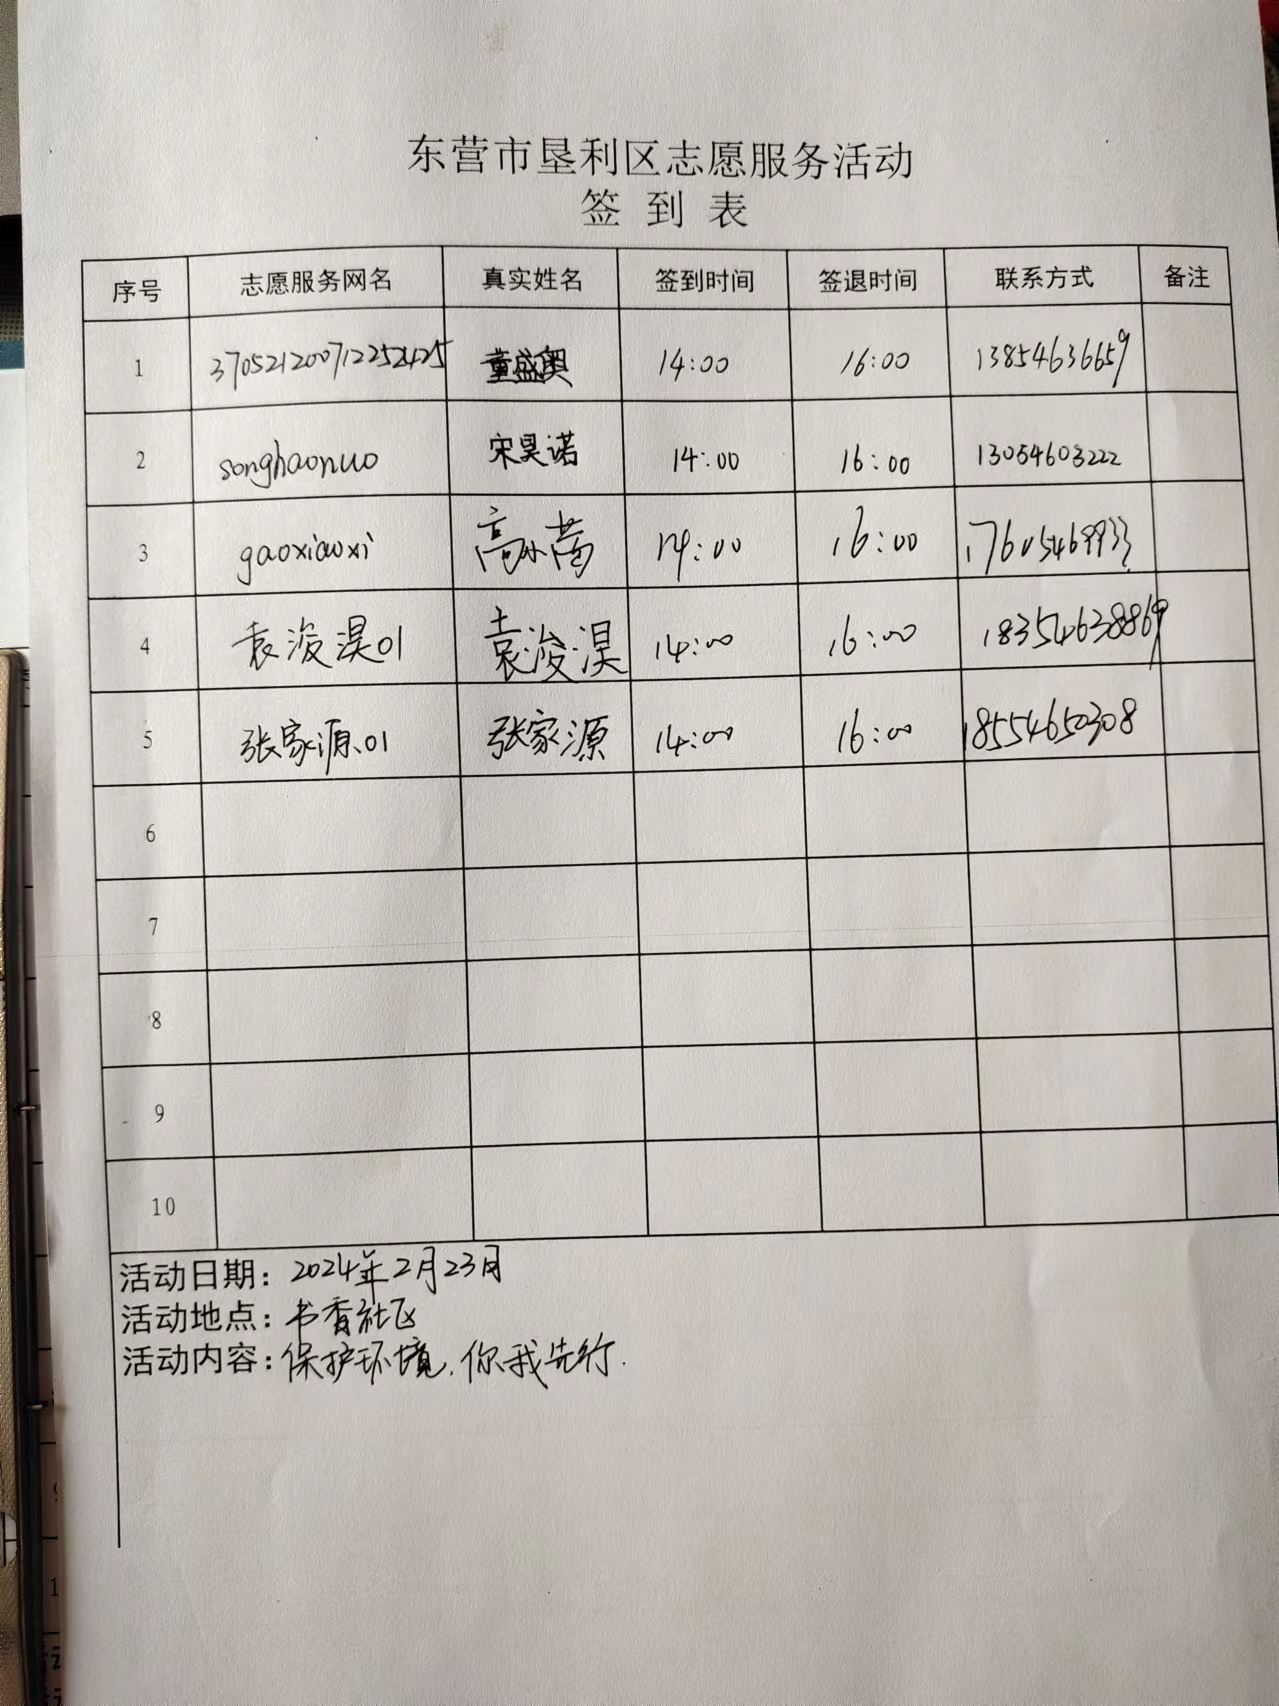 东营市垦利区志愿服务活动
签 到 表
序号 志愿服务网名 真实姓名 签到时间 签退时间 联系方式 备注
1 370521200712252425 董盛奥 14:00 16:00 13854636659
2 songhaonuo 宋昊诺 14:00 16:00 13054603222
3 gaoxiaoxi 高小茜 14:00 16:00
4 袁浚淏01 袁浚淏 14:00 16:00 18354638869
5 张家源01 张家源 14:00 16:00 18554650308
6
7
8
9
10
活动日期：2024年2月23日
活动地点：书香社区
活动内容：保护环境，你我先行.